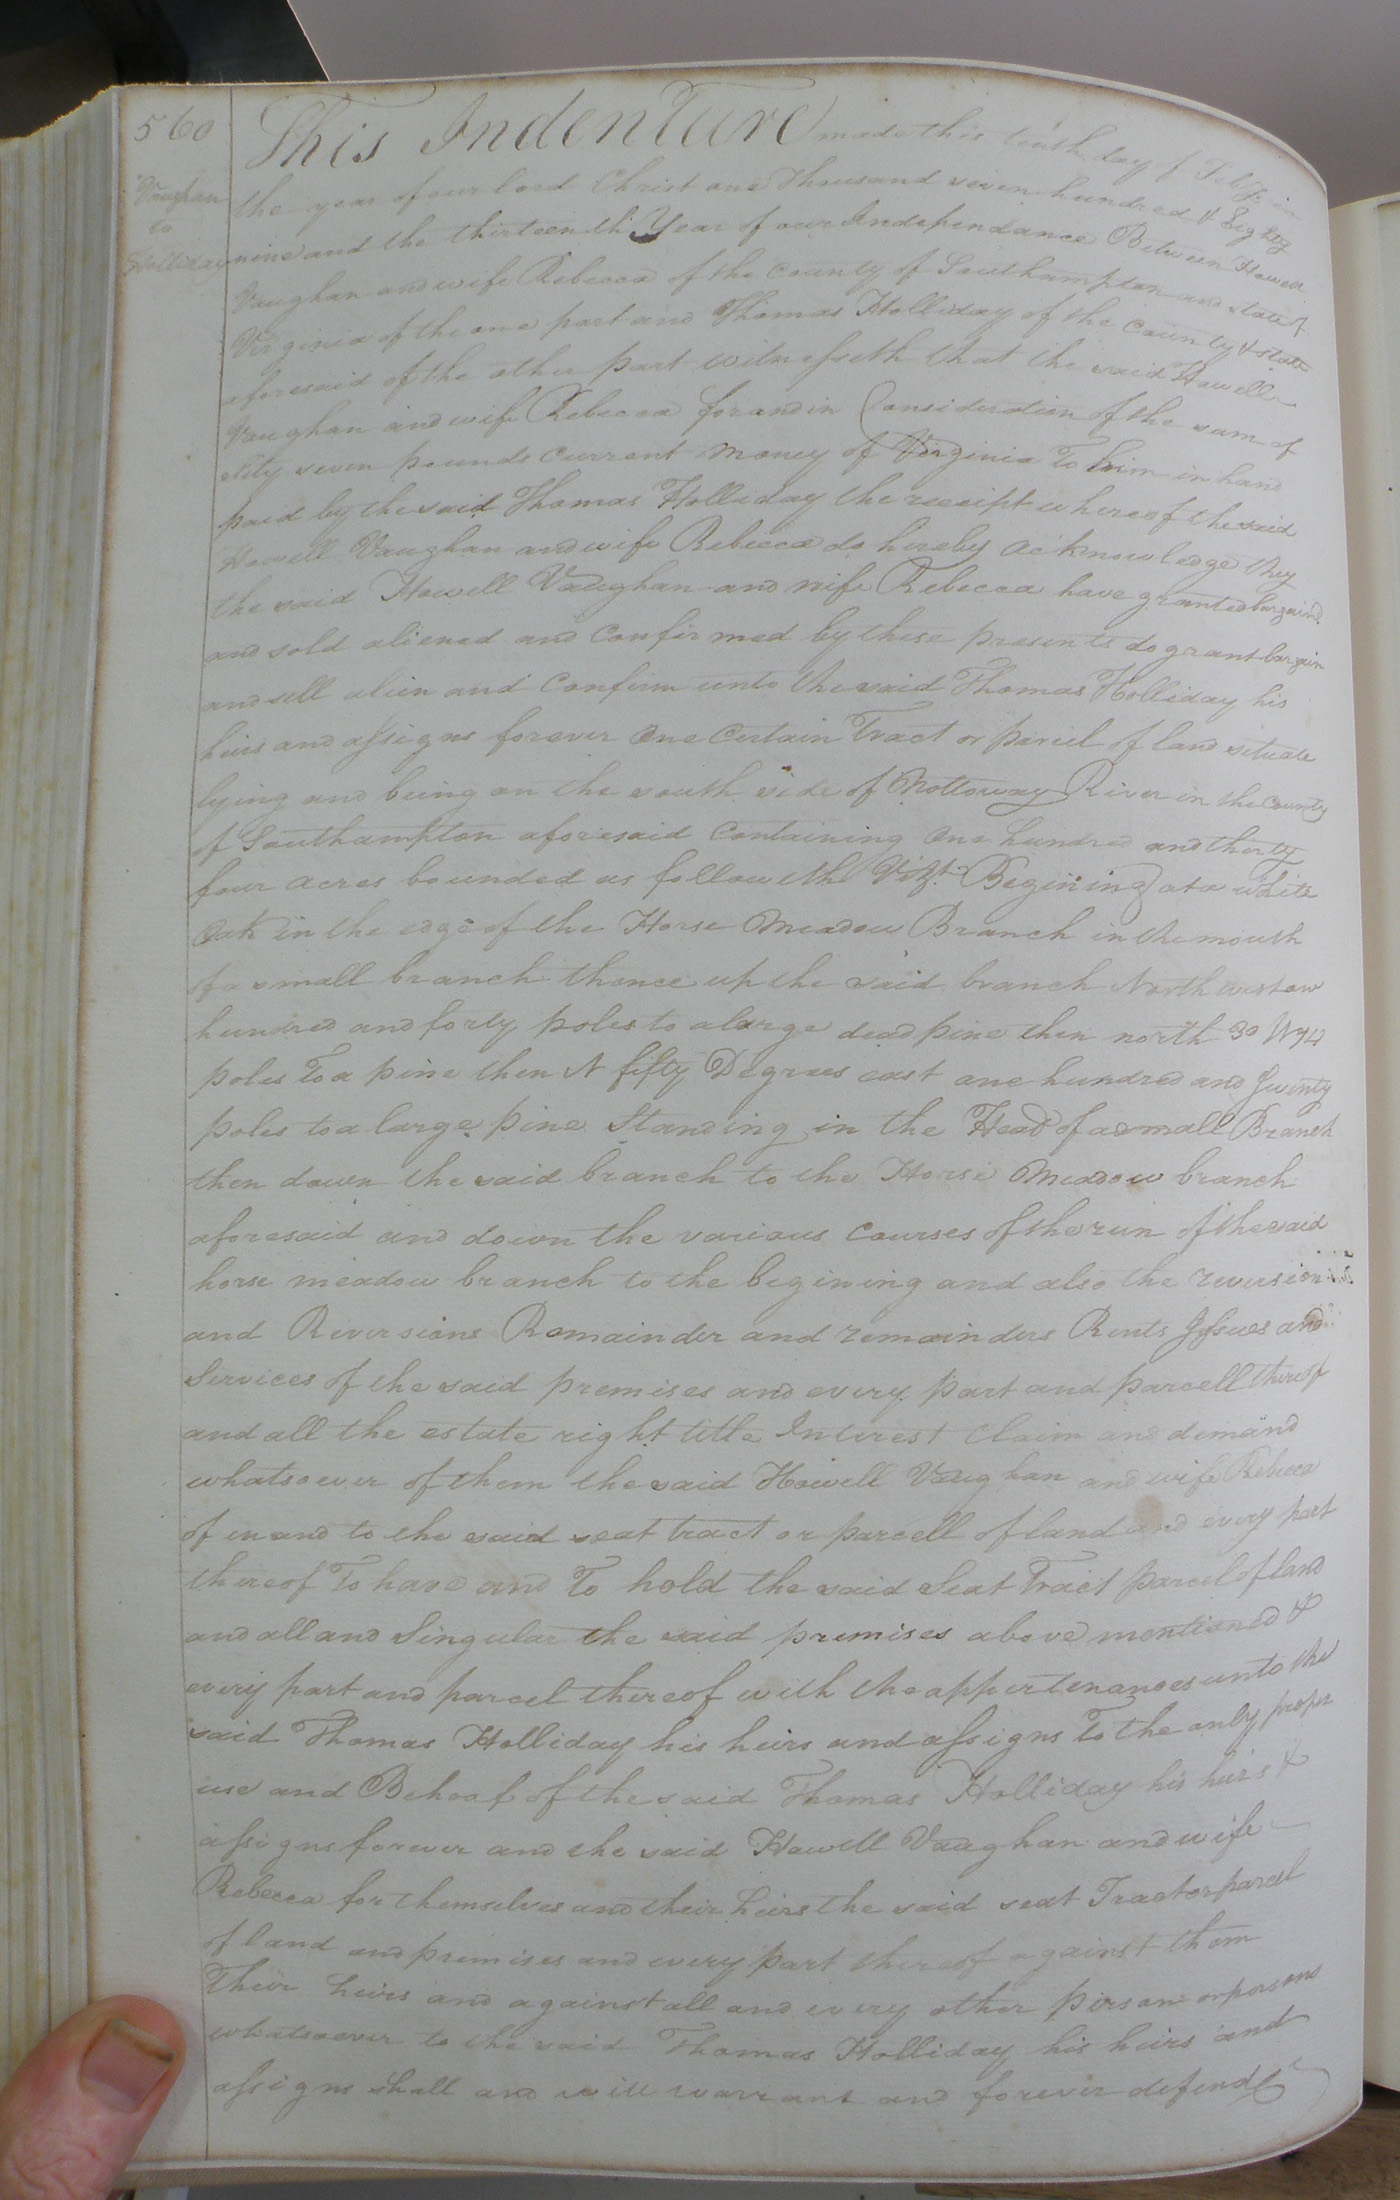 560
Vaughan
to
Holliday
This Indenture made this tenth day of Feby. in
the year of our lord Christ one thousand seven hundred & Eighty
nine and the thirteenth Year of our Independance Between Howell
Vaughan and wife Rebecca of the county of Southampton and state of
Virginia of the one part and Thomas Holliday of the County & state
aforesaid of the other part witnesseth that the said Howell
Vaughan and wife Rebecca for and in Consideration of the sum of
sixty seven pounds Current money of Virginia To him in hand
paid by the said Thomas Holliday the receipt whereof the said
Howell Vaughan and wife Rebecca do hereby acknowledge they
the said Howell Vaughan and wife Rebecca have granted bargaind
and sold aliened and Confirmed by these presents do grant bargain
and sell alien and Confirm unto the said Thomas Holliday his
heirs and assigns forever One Certain Tract or parcel of land situate
lying and being on the south side of Nottoway River in the County
of Southampton aforesaid Containing One hundred and thirty
four acres bounded as followeth Vizt. Begining at a white
Oak in the edge of the Horse Meadow Branch in the mouth
of a small branch thence up the said branch North west
hundred and forty poles to a large dead pine then north 30 W 94
poles To a pine then N fifty Degrees east one hundred and Twenty
poles to a large pine Standing in the Head of a small Branch
then down the said branch to the Horse Meadow branch
aforesaid and down the various Courses of the run of the said
horse meadow branch to the begining and also the reversion
and Reversions Remainder and remainders Rents Issues and
Services of the said premises and every part and parcell thereof
and all the estate right title Interest Claim and demand
whatsoever of them the said Howell Vaughan and wife Rebecca
of in and to the said seat tract or parcell of land and every part
thereof To have and To hold the said Seat Tract parcel of land
and all and Singular the said premises above mentioned &
every part and parcel thereof with the appertenances unto the
said Thomas Holliday his heirs and assigns To the only proper
use and Behoof of the said Thomas Holliday his heirs &
assigns forever and the said Howell Vaughan and wife
Rebecca for themselves and their heirs the said seat Tract or parcel
of land and premises and every part thereof against them
Their heirs and against all and every other person or persons
whatsoever to the said Thomas Holliday his heirs and
assigns shall and will warrant and forever defend